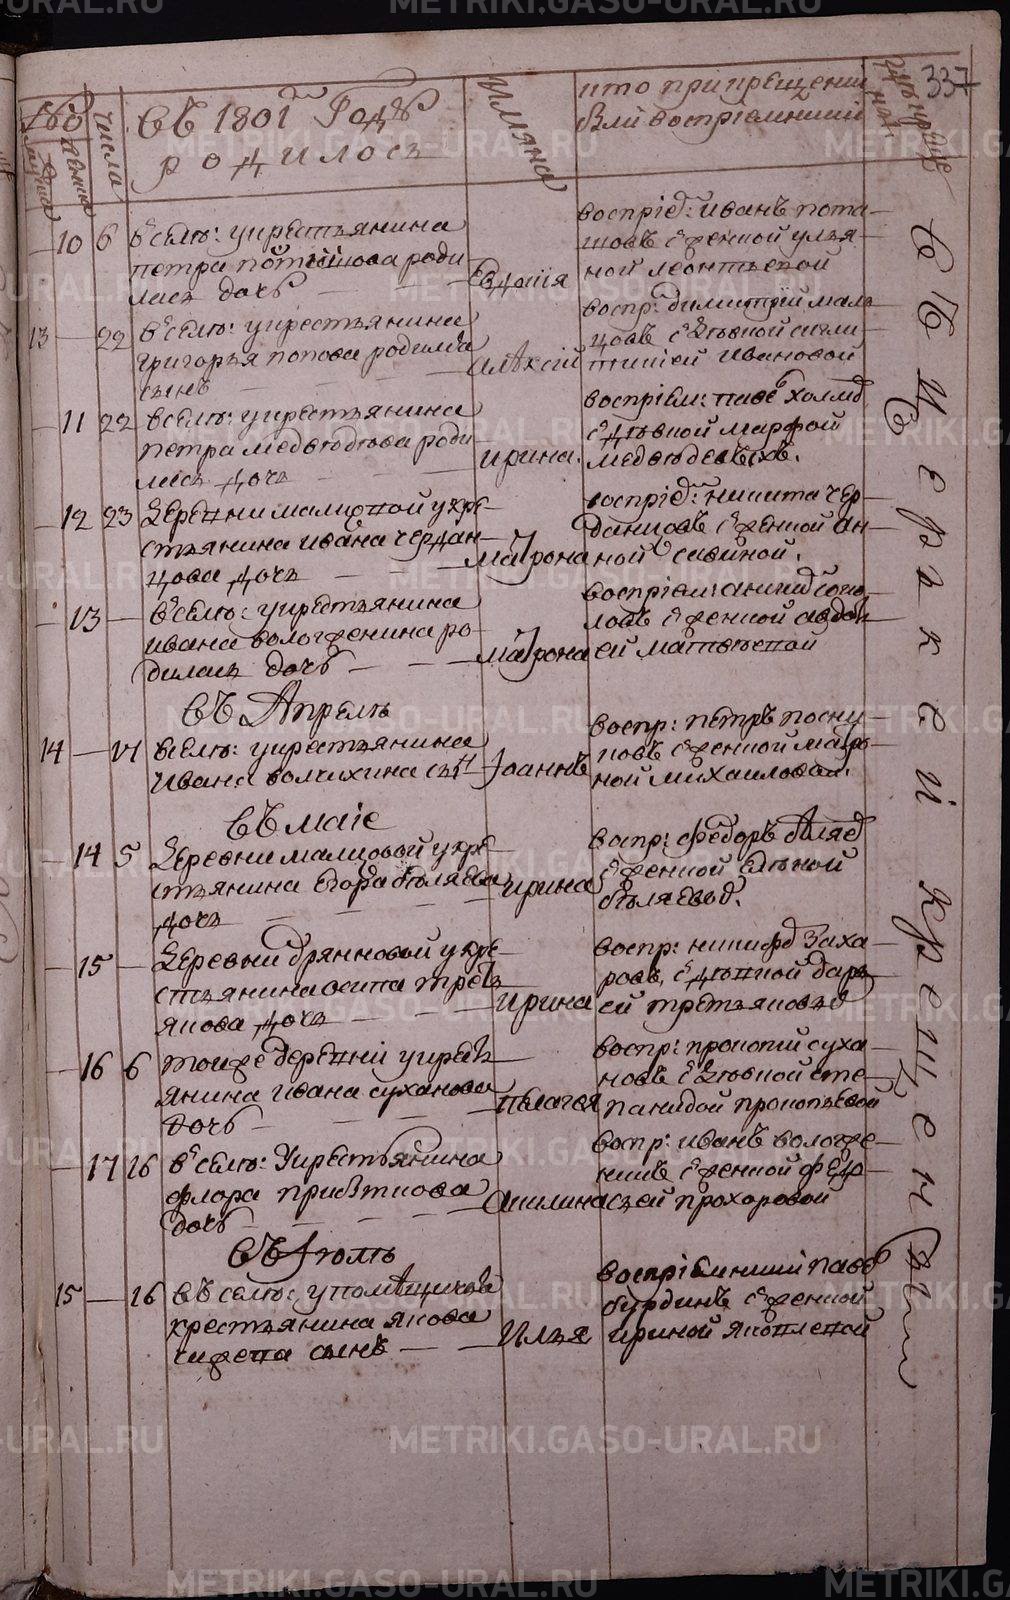 337
Число
Въ 1801м Годѣ
родилось
Имяна
кто при крещении
были воспріемники
10 6 въ селѣ: у крестьянина
петра
родилась дочь
Евдокія
воспріе: иванъ
с женкой улья-
ной леонтьевой
13 22 в селѣ: у крестьянина
григорья попова родился
сынъ
Алексій
воспр: димитрій маль
цовъ с дѣвкой
ивановой
11 22 в селѣ: у крестьянина
петра медвѣдева роди
лась дочь
ирина.
воспріем: паве холмо
с дѣвкой марфой
медвѣдевыхъ.
12 23 Деревни малцовой у кре-
стьянина ивана чердан-
цова дочь
матрона
воспріе: никита чер-
данцовъ с женкой ан
ной савиной.
13 — в селѣ: у крестьянина
ивана вологженина ро-
дилась дочь
матрона
воспріем:
ловъ с женкой авдоть
ей матвѣевой
въ Апрелѣ
14 — 11 в селѣ: у крестьянина
ивана волчихина сынъ
Іоаннъ
воспр: петръ
с женкой матро-
ной михаиловой.
въ маіе
14 5 Деревни малцовой у кре-
стьянина егора бѣляева
дочь
ирина
воспр: федоръ беляе
с женкой еленой
бѣляевы.
15 — Деревни дрянновой у кре-
стьянина осипа треть
якова дочь
ирина
воспр: никифо Заха-
ровъ, с дѣвкой дарь
ей третьяковы
16 6 тойже деревни у кресть
янина ивана суханова
дочь
пѣлагея
воспр: прокопій суха-
новъ с дѣвкой сте-
панидой прокопьевой
17 26 в селѣ: У крестьянина
флора прибыткова
дочь
Акилина
воспр: иванъ вологже-
нинъ с женкой фед-
осьей прохоровой
въ Іюлѣ
15 — 16 въ селѣ: у помѣщичева
крестьянина якова
сынъ
Илья
воспріемники паве
бурдинъ с женкой
ириной яковлевой